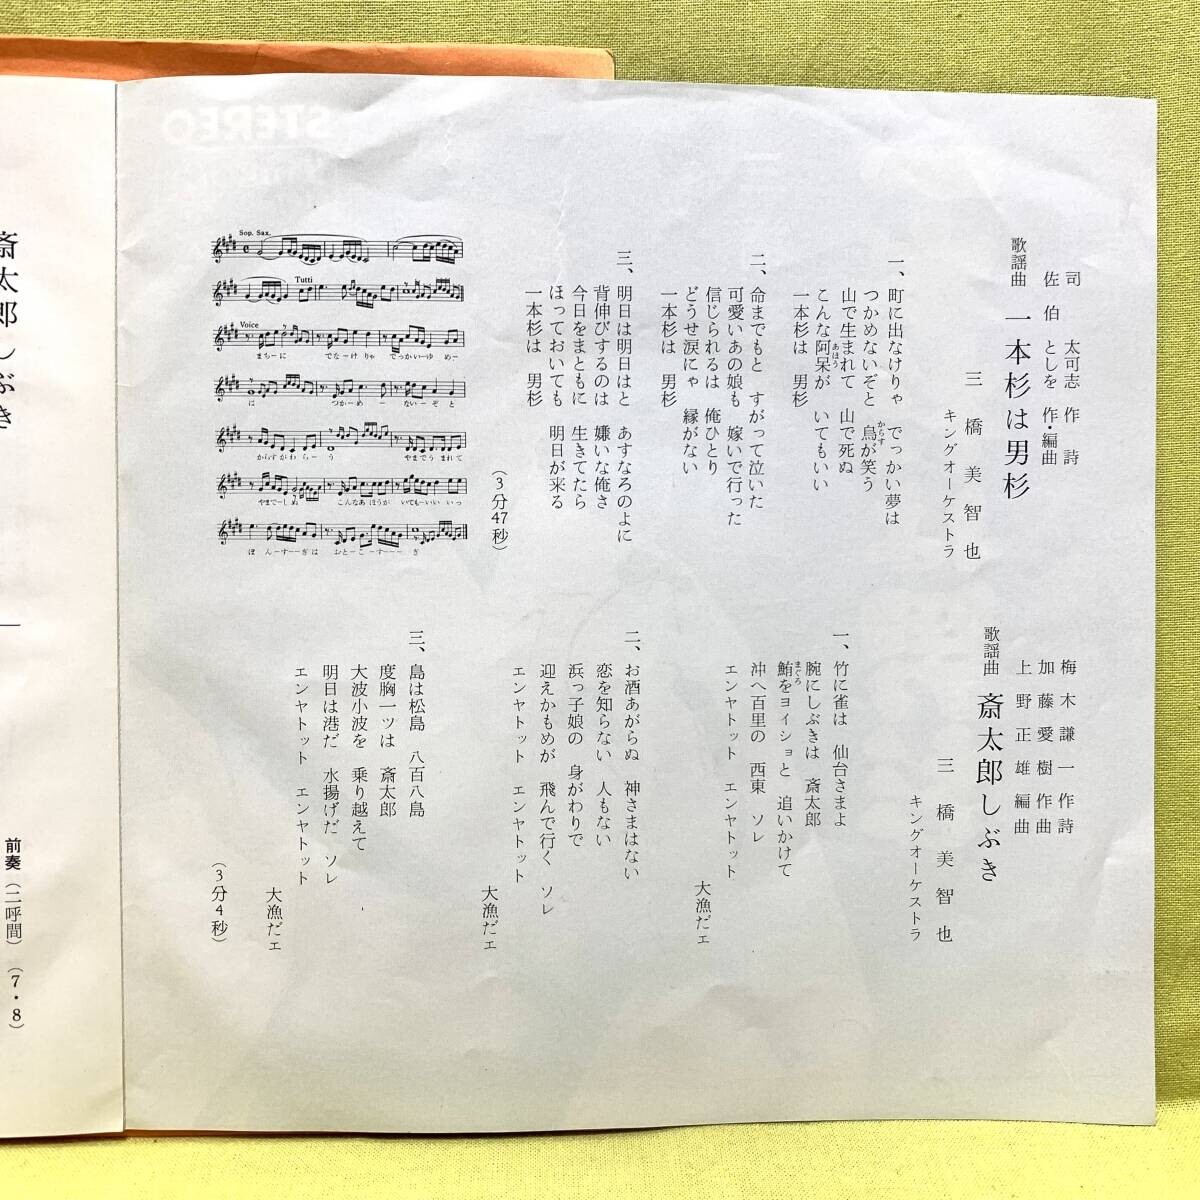 司 太可志 作詩
佐伯 としを 作・編曲
歌謡曲 一本杉は男杉
三橋美智也
キングオーケストラ
一、町に出なけりゃ でっかい夢は
つかめないぞと 烏が笑う
からす
山で生まれて 山で死ぬ
こんな阿呆が いてもいい
あほう
一本杉は 男杉
二、命までもと すがって泣いた
可愛いあの娘も 嫁いで行った
信じられるは 俺ひとり
どうせ涙にゃ 縁がない
一本杉は 男杉
三、明日は明日はと あすなろのよに
背伸びするのは 嫌いな俺さ
今日をまともに 生きてたら
ほっておいても 明日が来る
一本杉は 男杉
(3分47秒)
Sop. Sax.
Tutti
Voice
まちーに でなーけりゃ でっかいーゆめー
は つかーめー ないーぞと
からすがわらーう やまでうまれて
やまでーしぬ こんなあほうが いてもーいいいっ
ぽんーすーーぎは おとこーすーーーぎ
梅木謙一 作詩
加藤愛樹 作曲
上野正雄 編曲
歌謡曲 斎太郎しぶき
三橋美智也
キングオーケストラ
一、竹に雀は 仙台さまよ
腕にしぶきは 斎太郎
鮪をヨイショと 追いかけて
まぐろ
沖へ百里の 西東 ソレ
エンヤトット エンヤトット
大漁だエ
二、お酒あがらぬ 神さまはない
恋を知らない 人もない
浜っ子娘の 身がわりで
迎えかもめが 飛んで行く ソレ
エンヤトット エンヤトット
大漁だエ
三、島は松島 八百八島
度胸一ツは 斎太郎
大波小波を 乗り越えて
明日は港だ 水揚げだ ソレ
エンヤトット エンヤトット
大漁だエ
(3分4秒)
斎太郎しぶき
前奏(二呼間)(7・8)
STEREO